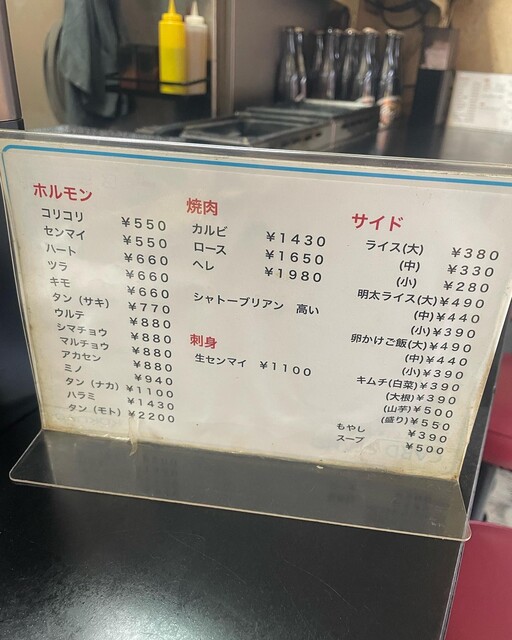 ホルモン
コリコリ ¥550
センマイ ¥550
ハート ¥660
ツラ ¥660
キモ ¥660
タン(サキ) ¥770
ウルテ ¥880
シマチョウ ¥880
マルチョウ ¥880
アカセン ¥880
ミノ ¥940
タン(ナカ) ¥1100
ハラミ ¥1430
タン(モト) ¥2200
焼肉
カルビ ¥1430
ロース ¥1650
ヘレ ¥1980
シャトーブリアン 高い
刺身
生センマイ ¥1100
サイド
ライス(大) ¥380
(中) ¥330
(小) ¥280
明太ライス(大) ¥490
(中) ¥440
(小) ¥390
卵かけご飯(大) ¥490
(中) ¥440
(小) ¥390
キムチ(白菜) ¥390
(大根) ¥390
(山芋) ¥500
(盛り) ¥550
もやし ¥390
スープ ¥500